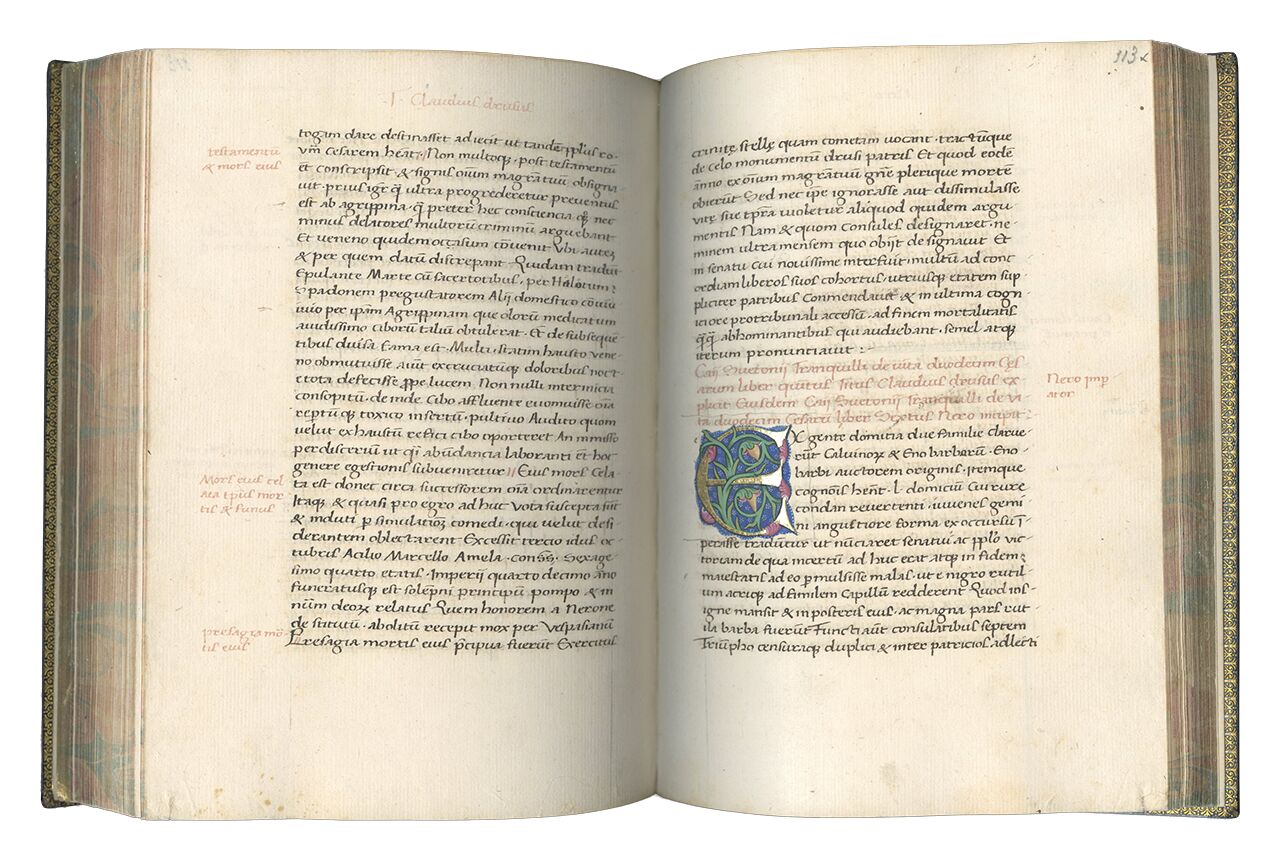 ·T· Claudius drusus
testamentū
& mors eius
togam dare destinasset adiecit ut tandē pplus ro-
Cesarem hēnt. Non multoq3 post testamentū
et conscripsit & signis oīum magratuum obsigna
uit prius igr̄ q̄ ultra progrederetur preuentus
est ab agrippina q̄ preter hec consciencia q3 nec
minus delatores multorū criminū arguebant
Et ueneno quidem occisum cōuenit Vbi autez
& per quem datū discrepant Quidam tradūt
Epulante Marte cū sacertotibus, per Halotum
Spadonem pregustatorem Alij domestico cōui
uio per ipam Agrippinam que olorū medicatum
auidissimo ciborū talium obtulerat. Et de subseque
tibus diuisa Fama est. Multi, statim hausto uene
no obmutuisse aiūt excruciatūq3 doloribus noct
tota defecisse ppe lucem Non nulli inter inicia
consopitū. de inde. Cibo affluente euomuisse oīa
repetitūq3 toxico insertū, pultiuo Audito quom
uelut exhaustū refici cibo oporteret An inmisso
per discrium ut q̄i abundancia laboranti et hoc
genere egestionis subueniretur || Eius mors Cela
Mors eius rel
ata tp̄us mor
tis & funus
ta est donec circa successorem oīa ordinarentur
Itaq3 & quasi pro egro ad huc Vota suscepta sūt
& induti p̄ simulationē comedi. qui uelut desi-
derantem oblectarent Excessit tercio idus oc
tubris Acilio Marcello Amela · conss · Sexage-
simo quarto etatis. Imperij quarto decimo āno
funeratusq3 est solepni principū pompo & in
nūm deorum relatus Quem honorem a Nerone
de stitutū . abolitū recepit mox per Vespasianū
presagia mor
tis eius
Presagia mortis eius p̄cipua fuerūt Exercitus
113
crinite stelle quam cometam uocant . tractūque
de Celo monumentū drusi patris Et quod eodē
anno ex oīum magratuum gn̄e plerique morte
obierūt Sed nec ipe ignorasse aut dissimulasse
uite sue tp̄ra uioletur aliquod quidem argu-
mentis Nam & quom Consules designaret . ne-
minem ultra mensem quo obijt designauit Et
in senatu Cui nouissime interfuit. multū ad conc
ordiam liberos suos cohortus. utriusq3 etatem sup
pliciter patribus Commendauit & in ultima cogn
iciore pro tribunali accessū . ad finem mortalitatis
q̄q̄ abhominantibus qui audiebant . semel atq3
iterum pronunciauit :-
Caii Suetonij Tranquilli de uita duodecim Ces
arum liber quintus Titus Claudius drusus ex
plicit Eiusdem Caii Suetonij Tranquilli de ui
ta duodecim Cesarū liber Sextus Nero incipit
Nero imp
ator
EX gente domitia due familie Clarue-
rūt Caluinorum & Eno barborū . Eno-
barbi auctorem originis, itemque
cognois hēnt · L domiciū Cui rure
condan reuertenti, iuuenes gemi
ni angustiore forma ex occursu
perasse traduntur ut nūciaret senatui ac pplo uic-
toriam de qua incertū ad huc erat atq3 in fidem
maiestatis ad eo p̄mulsisse malas. ut e nigro rutil
um acriq3 ad similem Capillū redderent Quod ins
igne mansit & in posteris eius. ac magna pars rut
ila barba fuerūt Functi aūt consulatibus septem
Triumpho censuraq3 duplici & inter patricios adlecti